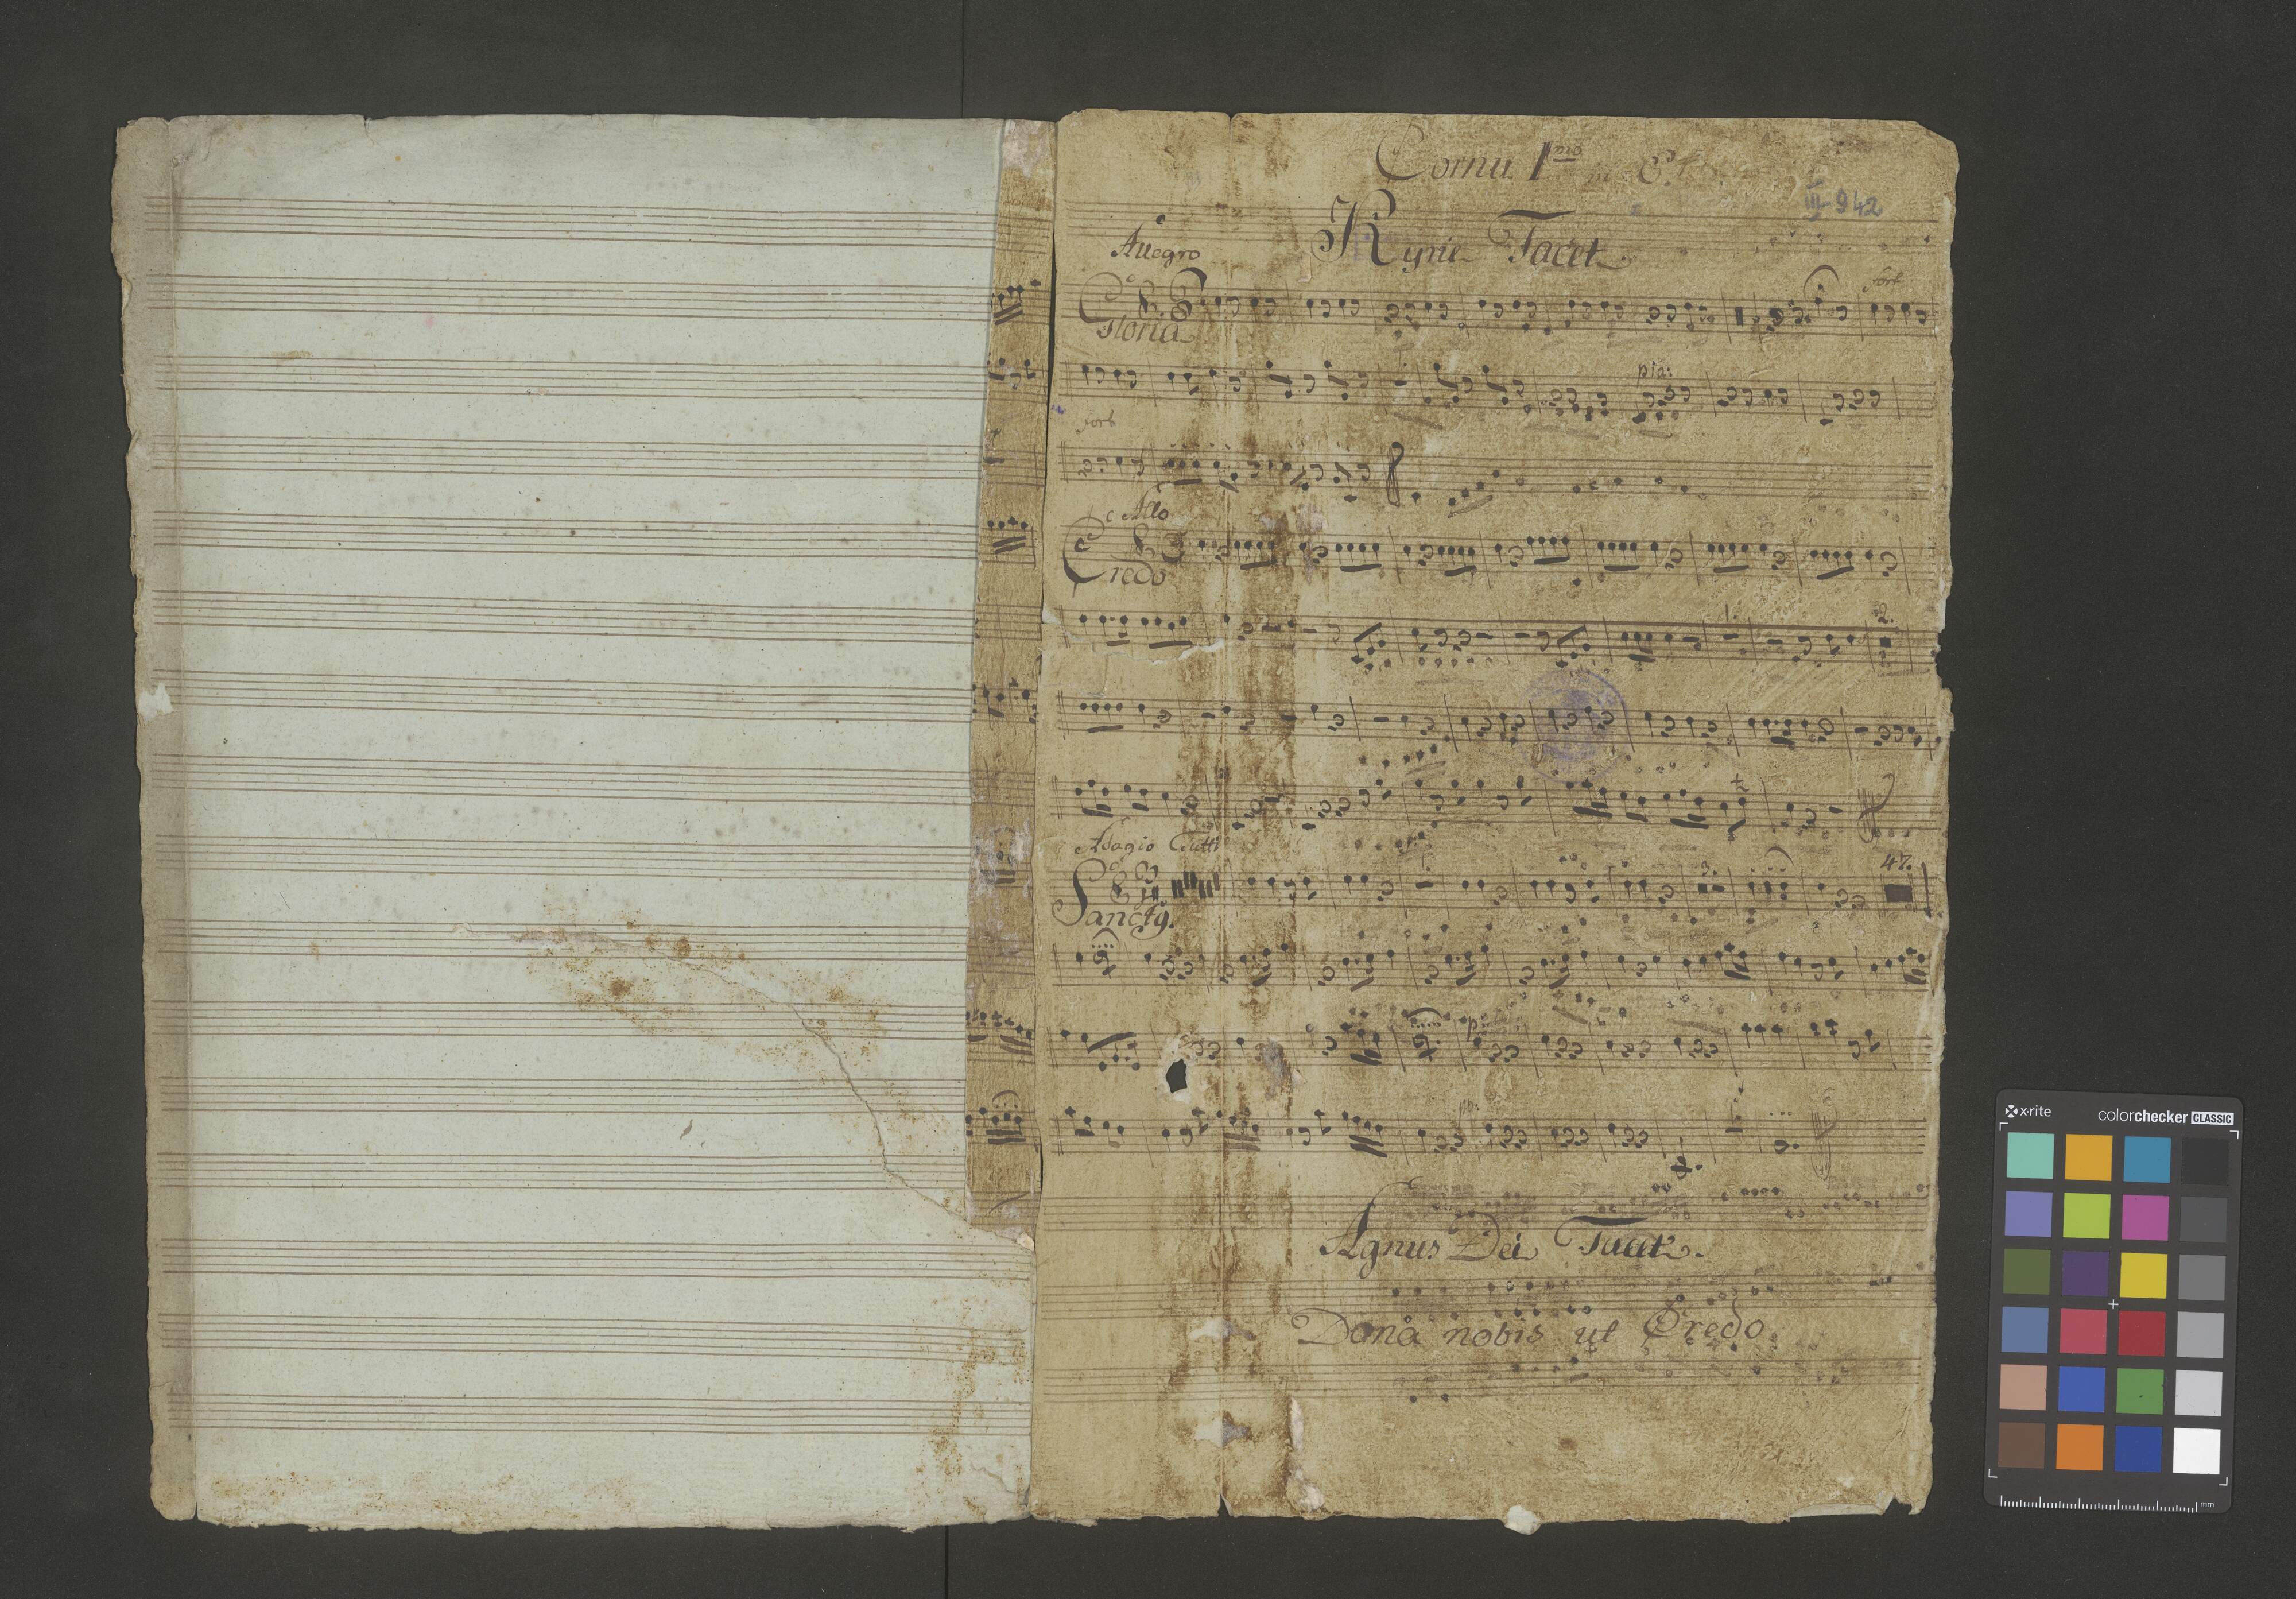 Cornu 1mo in C
III-942
Kyrie Tacet
Allegro
fort
Gloria
pia:
fort
Allo
Credo
1.
2.
Adagio Tutti
3.
47.
Sanctq.
p:
pia:
Agnus Dei Tacet.
Dona nobis ut Credo
x-rite
colorchecker CLASSIC
mm